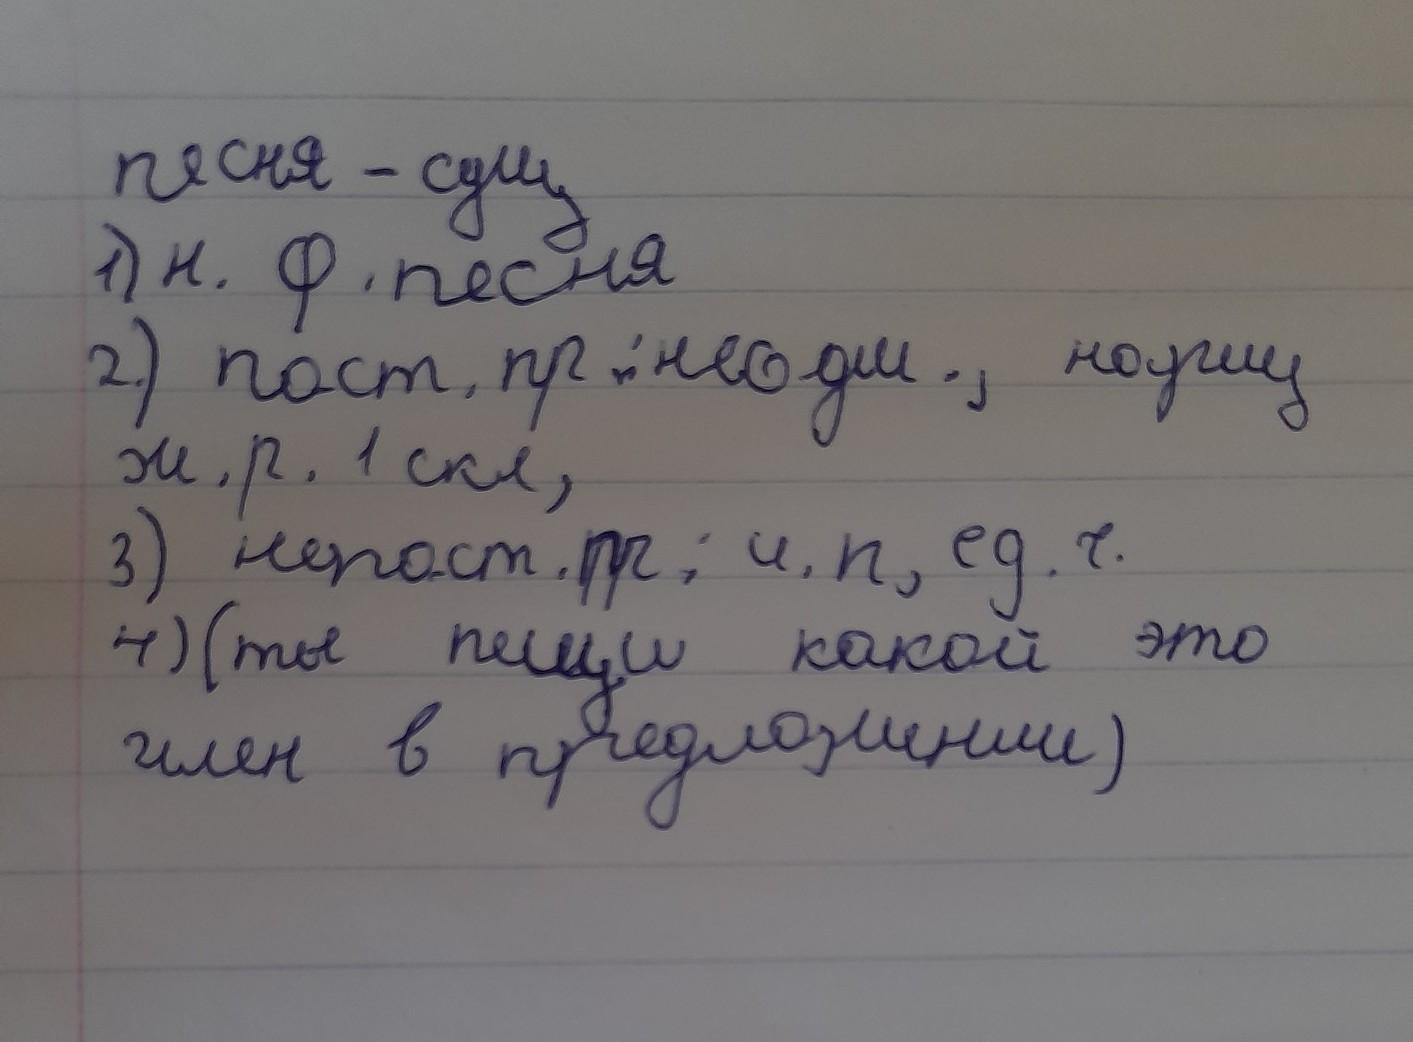 песня - сущ
1) н. ф. песня
2.) пост. пр.: неодш., нариц
ж.р. 1 скл,
3) непост. пр; и.п, ед.ч.
4) (ты пишеш какой это
член в предложении)